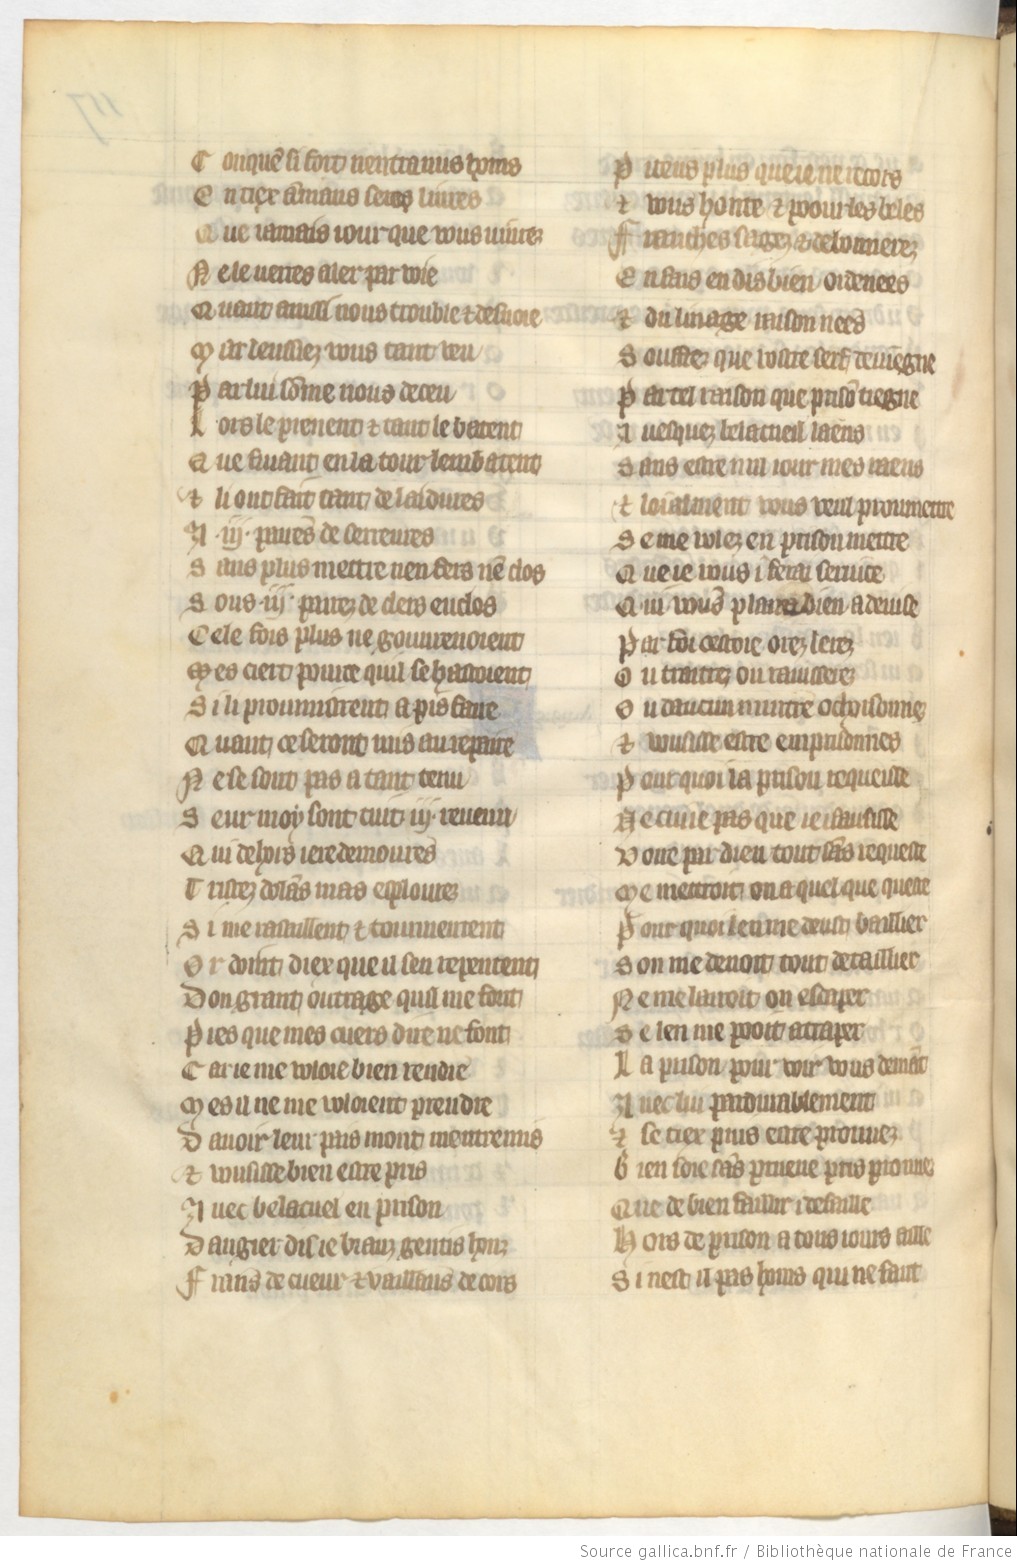 C onques si fort nentra nus homs
E n tiex amans seres livres
Q ue iamais iour que vous vivez
N e le verres aler par voie
Q uant aussi nous trouble et desvoie
M ar leussiez vous tant veu
P ar lui sõme nous deceu
L ors le prenent et tant le batent
Q ue fuiant en la tour lembatent
et li ont fait tant de laidures
A .iij. paires de serreures
S ans plus mettre nen fers nẽ clos
S ous .iij. paire de clers enclos
C ele fois plus ne gouvrenoient
M es ciert pource quil se hastoient
S i li proumistrent a pis faire
Q uant ce seront mis au repaire
N e se sont pas a tant tenu
S eur moy sont tuit .iij. revenu
Q ui dehors iere demoures
T ristez dolãs mas esploures
S i me rassaillent et tourmentent
O r doint diex que il sen repentent
D ou grant outrage quil me font
P res que mes cuers dire ne font
C ar ie me voloie bien rendre
M es il ne me voloient prendre
D avoir leur pais mont mentremis
et vousisse bien estre pris
A vec belacuel en prison
D angier dis ie biauz gentis hons
F rans de cueur et vaillans de cors
P iteus plus que ie ne recors
et vous honte et paour les beles
F ranches sagez et debonnerez
E n fais en dis bien ordenees
et du linage raison nees
S ouffrez que vostre serf deviegne
P ar tel raison que prisõ tiegne
A vesquez belacueil laens
S ans estre nul iour mes raens
et loialment vous veul proumettre
S e me volez en prison mettre
Q ue ie vous i ferai service
Q ui vous plaira bien a devise
P ar foi cestoie orez lerez
O u traitrez ou ravisserez
O u daucun murtre ochoisonnez
et vousisse estre emprisonnes
P our quoi la prison requeisse
N e cuit ie pas que ie i fausisse
V oire par dieu tout sãs requeste
M e mettroit on a quel que queste
P our quoi len me deust baillier
S on me devoit tout detaillier
N e me lairoit on eschaper
S e len me pooit attraper
L a prison pour voir vous demãt
A vec lui pardurablement
et se tiex puis estre prouvez
B ien soie sãs prueve pris prouvez
Q ue de bien faillir i defaille
H ors de prison a tous iours aille
S i nest il pas homs qui ne faut
Source gallica.bnf.fr / Bibliothèque nationale de France